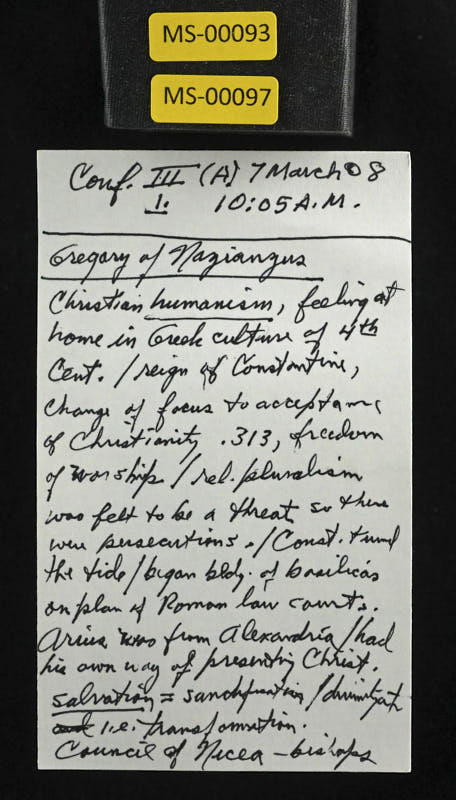 MS-00093
MS-00097
Conf. III (A) 7 March 08
1. 10:05 A.M.
Gregory of Nazianzus
Christian humanism, feeling at
home in Greek culture of 4th
Cent. / reign of Constantine,
change of focus to acceptance
of Christianity .313, freedom
of worship / rel. pluralism
was felt to be a threat so there
were persecutions. / Const. turned
the tide / began bldg. of basilicas
on plan of Roman law courts.
Arius was from Alexandria / had
his own way of presenting Christ.
salvation = sanctification /
i.e. transformation.
Council of Nicea - bishops